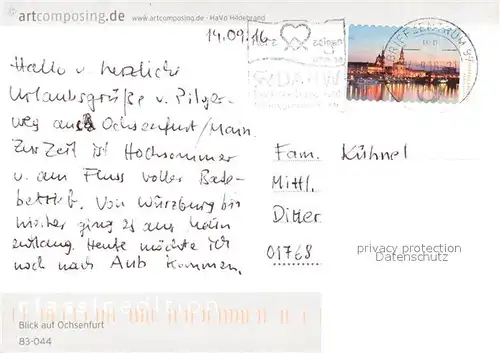 www.artcomposing.de
artcomposing.de
www.artcomposing.de · HaVo Hildebrand
14.09.16
Hallo u. herzliche
Urlaubsgrüße v. Pilger-
weg aus Ochsenfurt/Main.
Zur Zeit ist Hochsommer
u. am Fluss voller Bade-
betrieb. Von Würzburg bis
hierher ging es am Main
entlang. Heute möchte ich
noch nach Aub kommen.
Herz zeigen
BRIEFZENTRUM
Fam. Kühnel
Mittl.
Ditter
01768
privacy protection
Datenschutz
classic edition
Blick auf Ochsenfurt
83-044